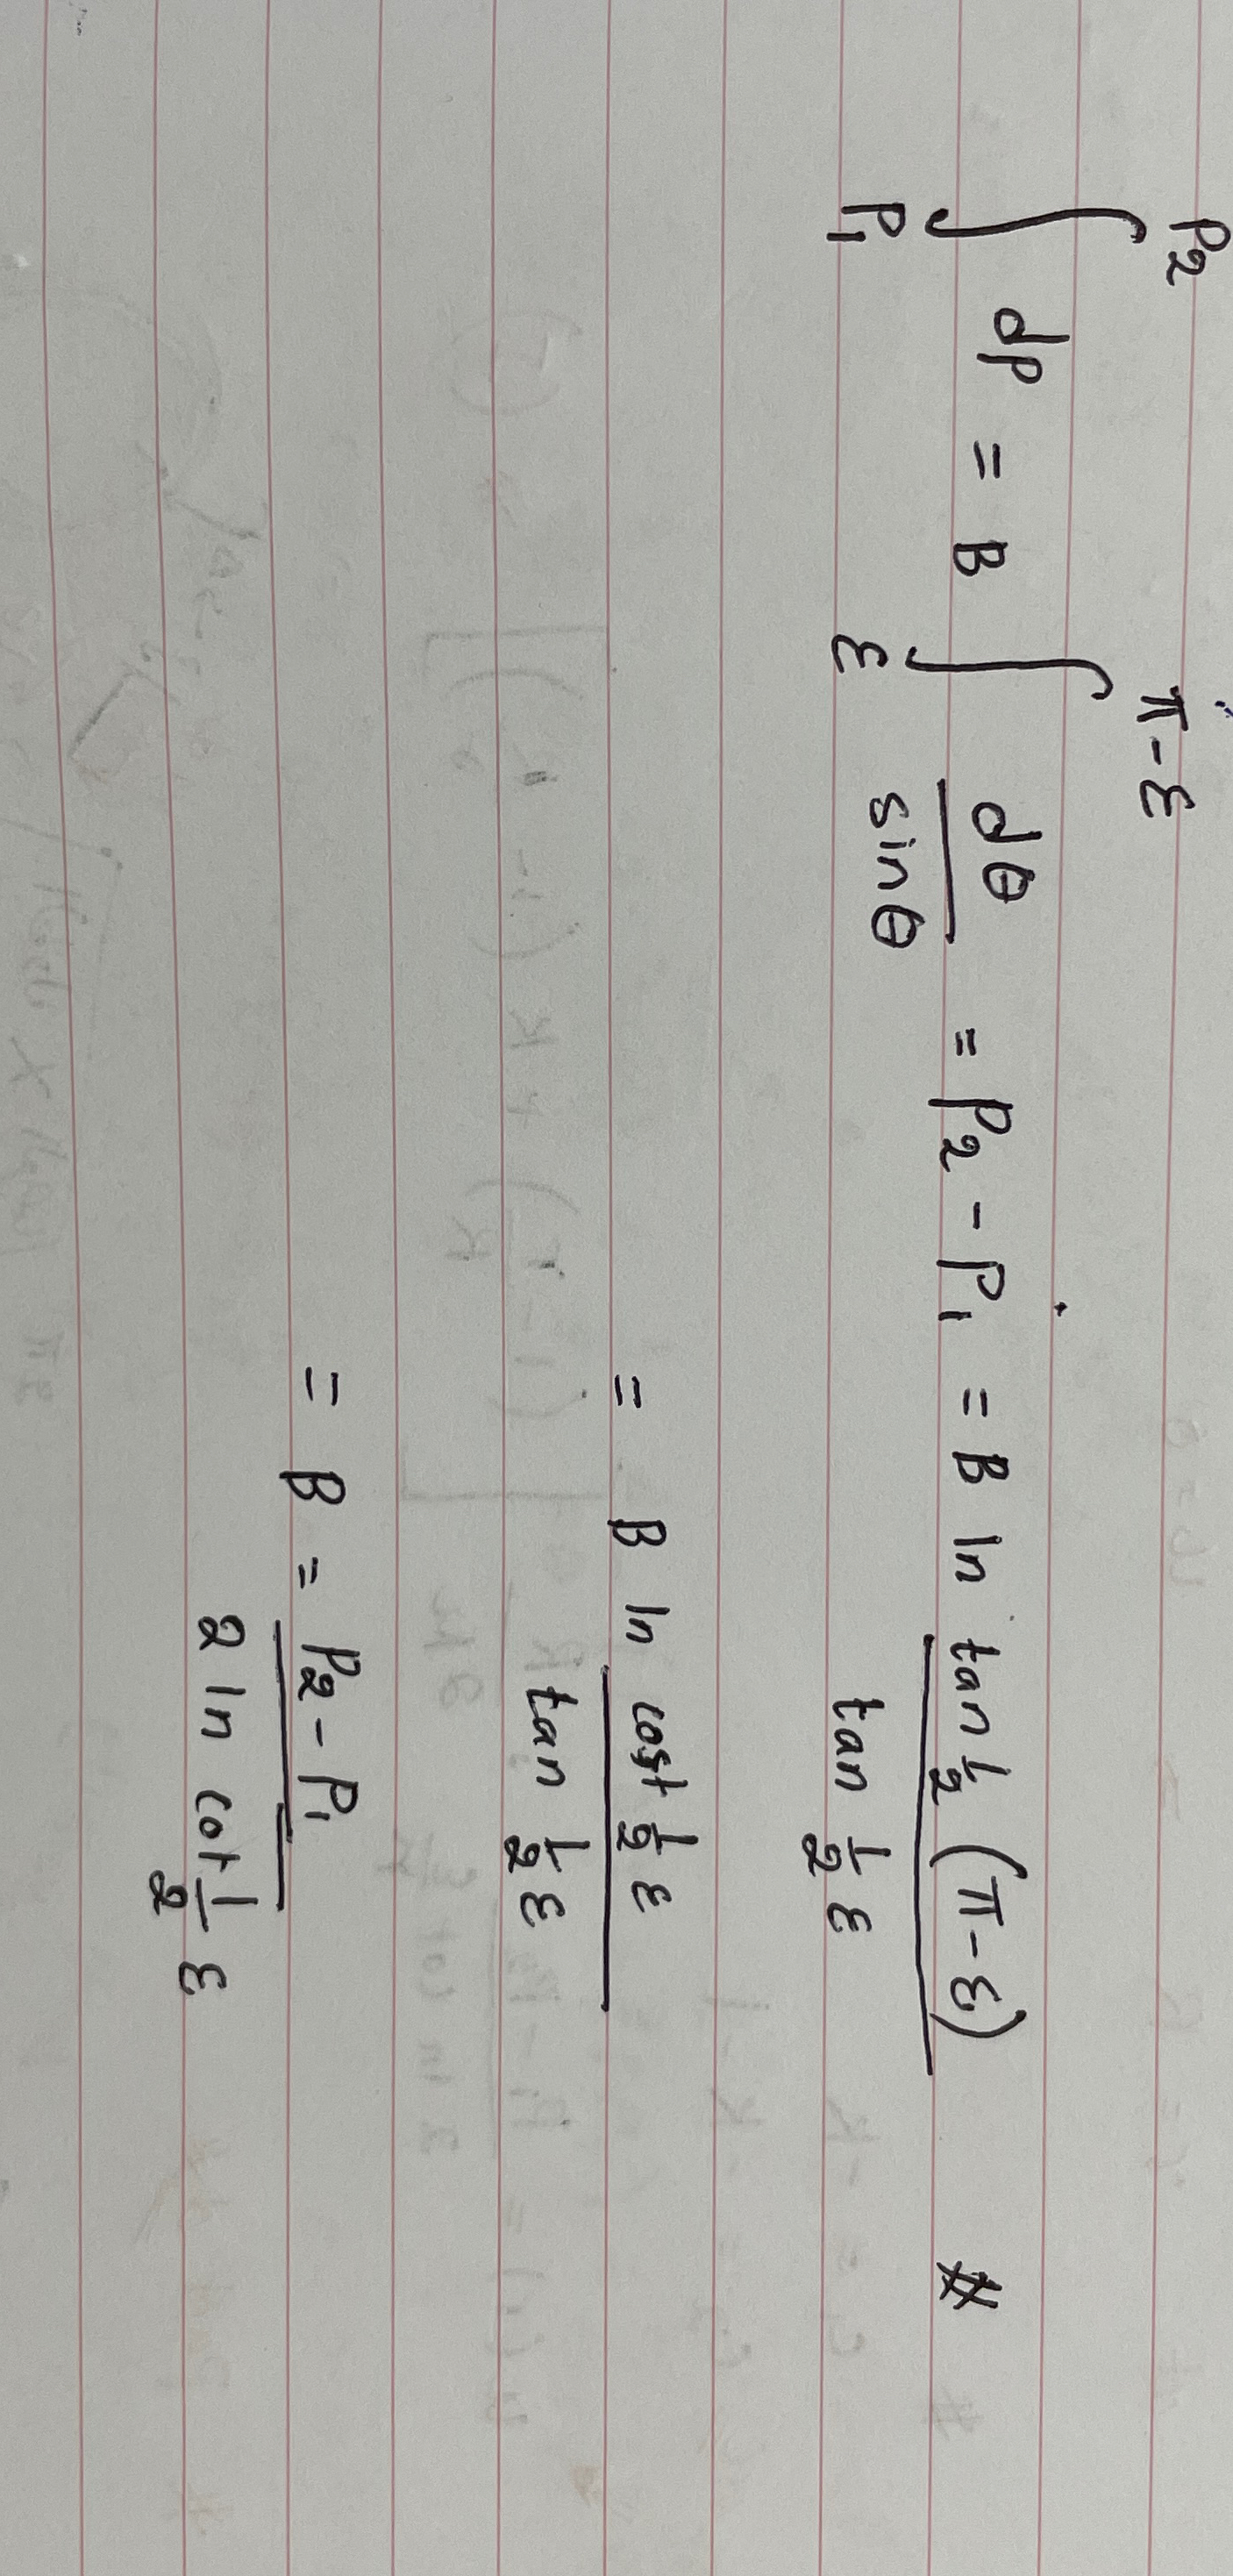 ∫_{P₁}^{P₂} dp = B ∫_ε^{π-ε} dθ/sinθ = P₂ - P₁ = B ln (tan ½ (π-ε))/(tan ½ ε) #
= B ln (cot ½ ε)/(tan ½ ε)
= B = (P₂ - P₁)/(2 ln cot ½ ε)